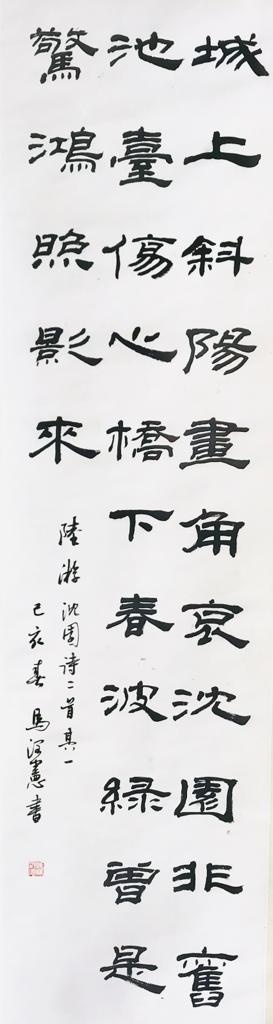 城上斜陽畫角哀沈園非舊
池臺傷心橋下春波綠曾是
驚鴻照影來
陸游沈園诗二首其一
己亥春馬書